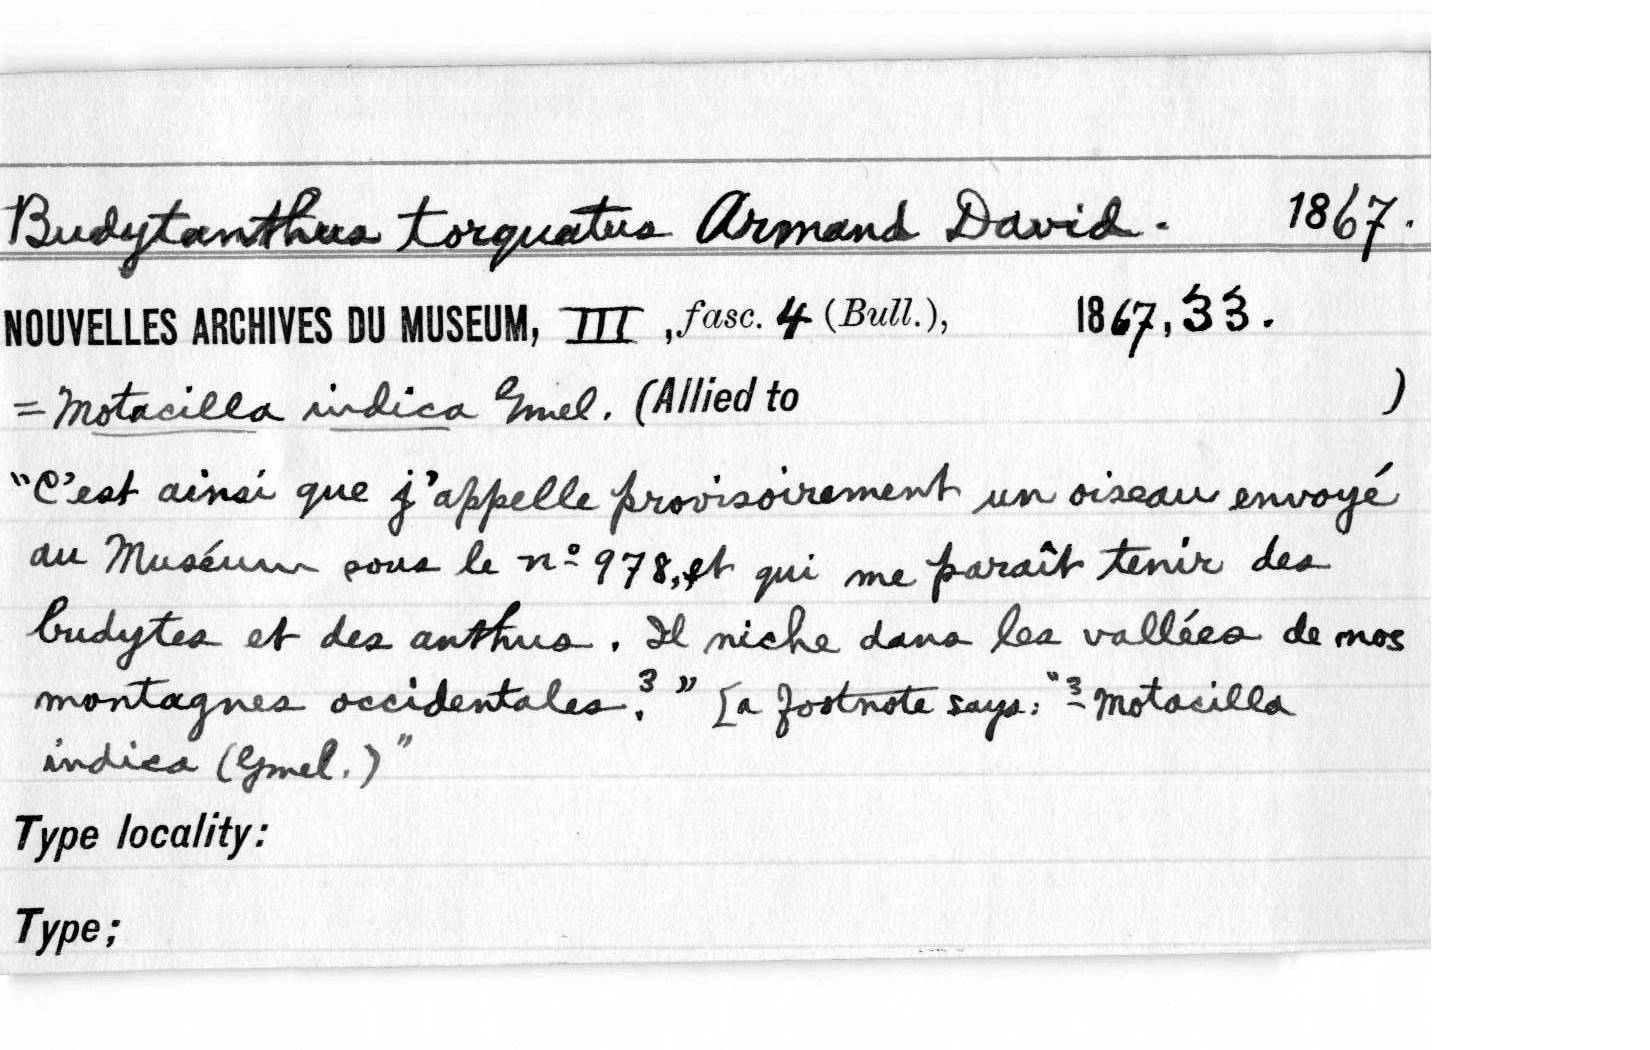 Budytanthus torquatus Armand David. 1867.
NOUVELLES ARCHIVES DU MUSEUM, III, fasc. 4 (Bull.), 1867, 33.
= Motacilla indica Gmel. (Allied to )
"C'est ainsi que j'appelle provisoirement un oiseau envoyé
au Muséum sous le nº 978, et qui me paraît tenir des
budytes et des anthus. Il niche dans les vallées de mos
montagnes occidentales.³" [a footnote says: "³ Motacilla
indica (Gmel.)"
Type locality:
Type;